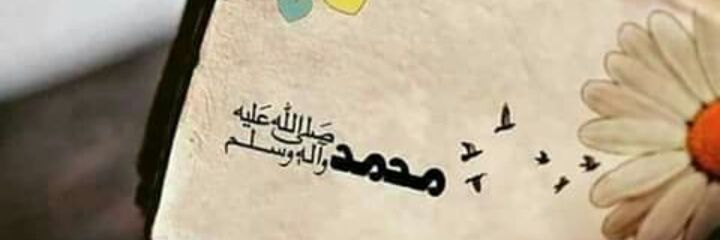 محمد صَلى الله عَليه
وآله وسلم